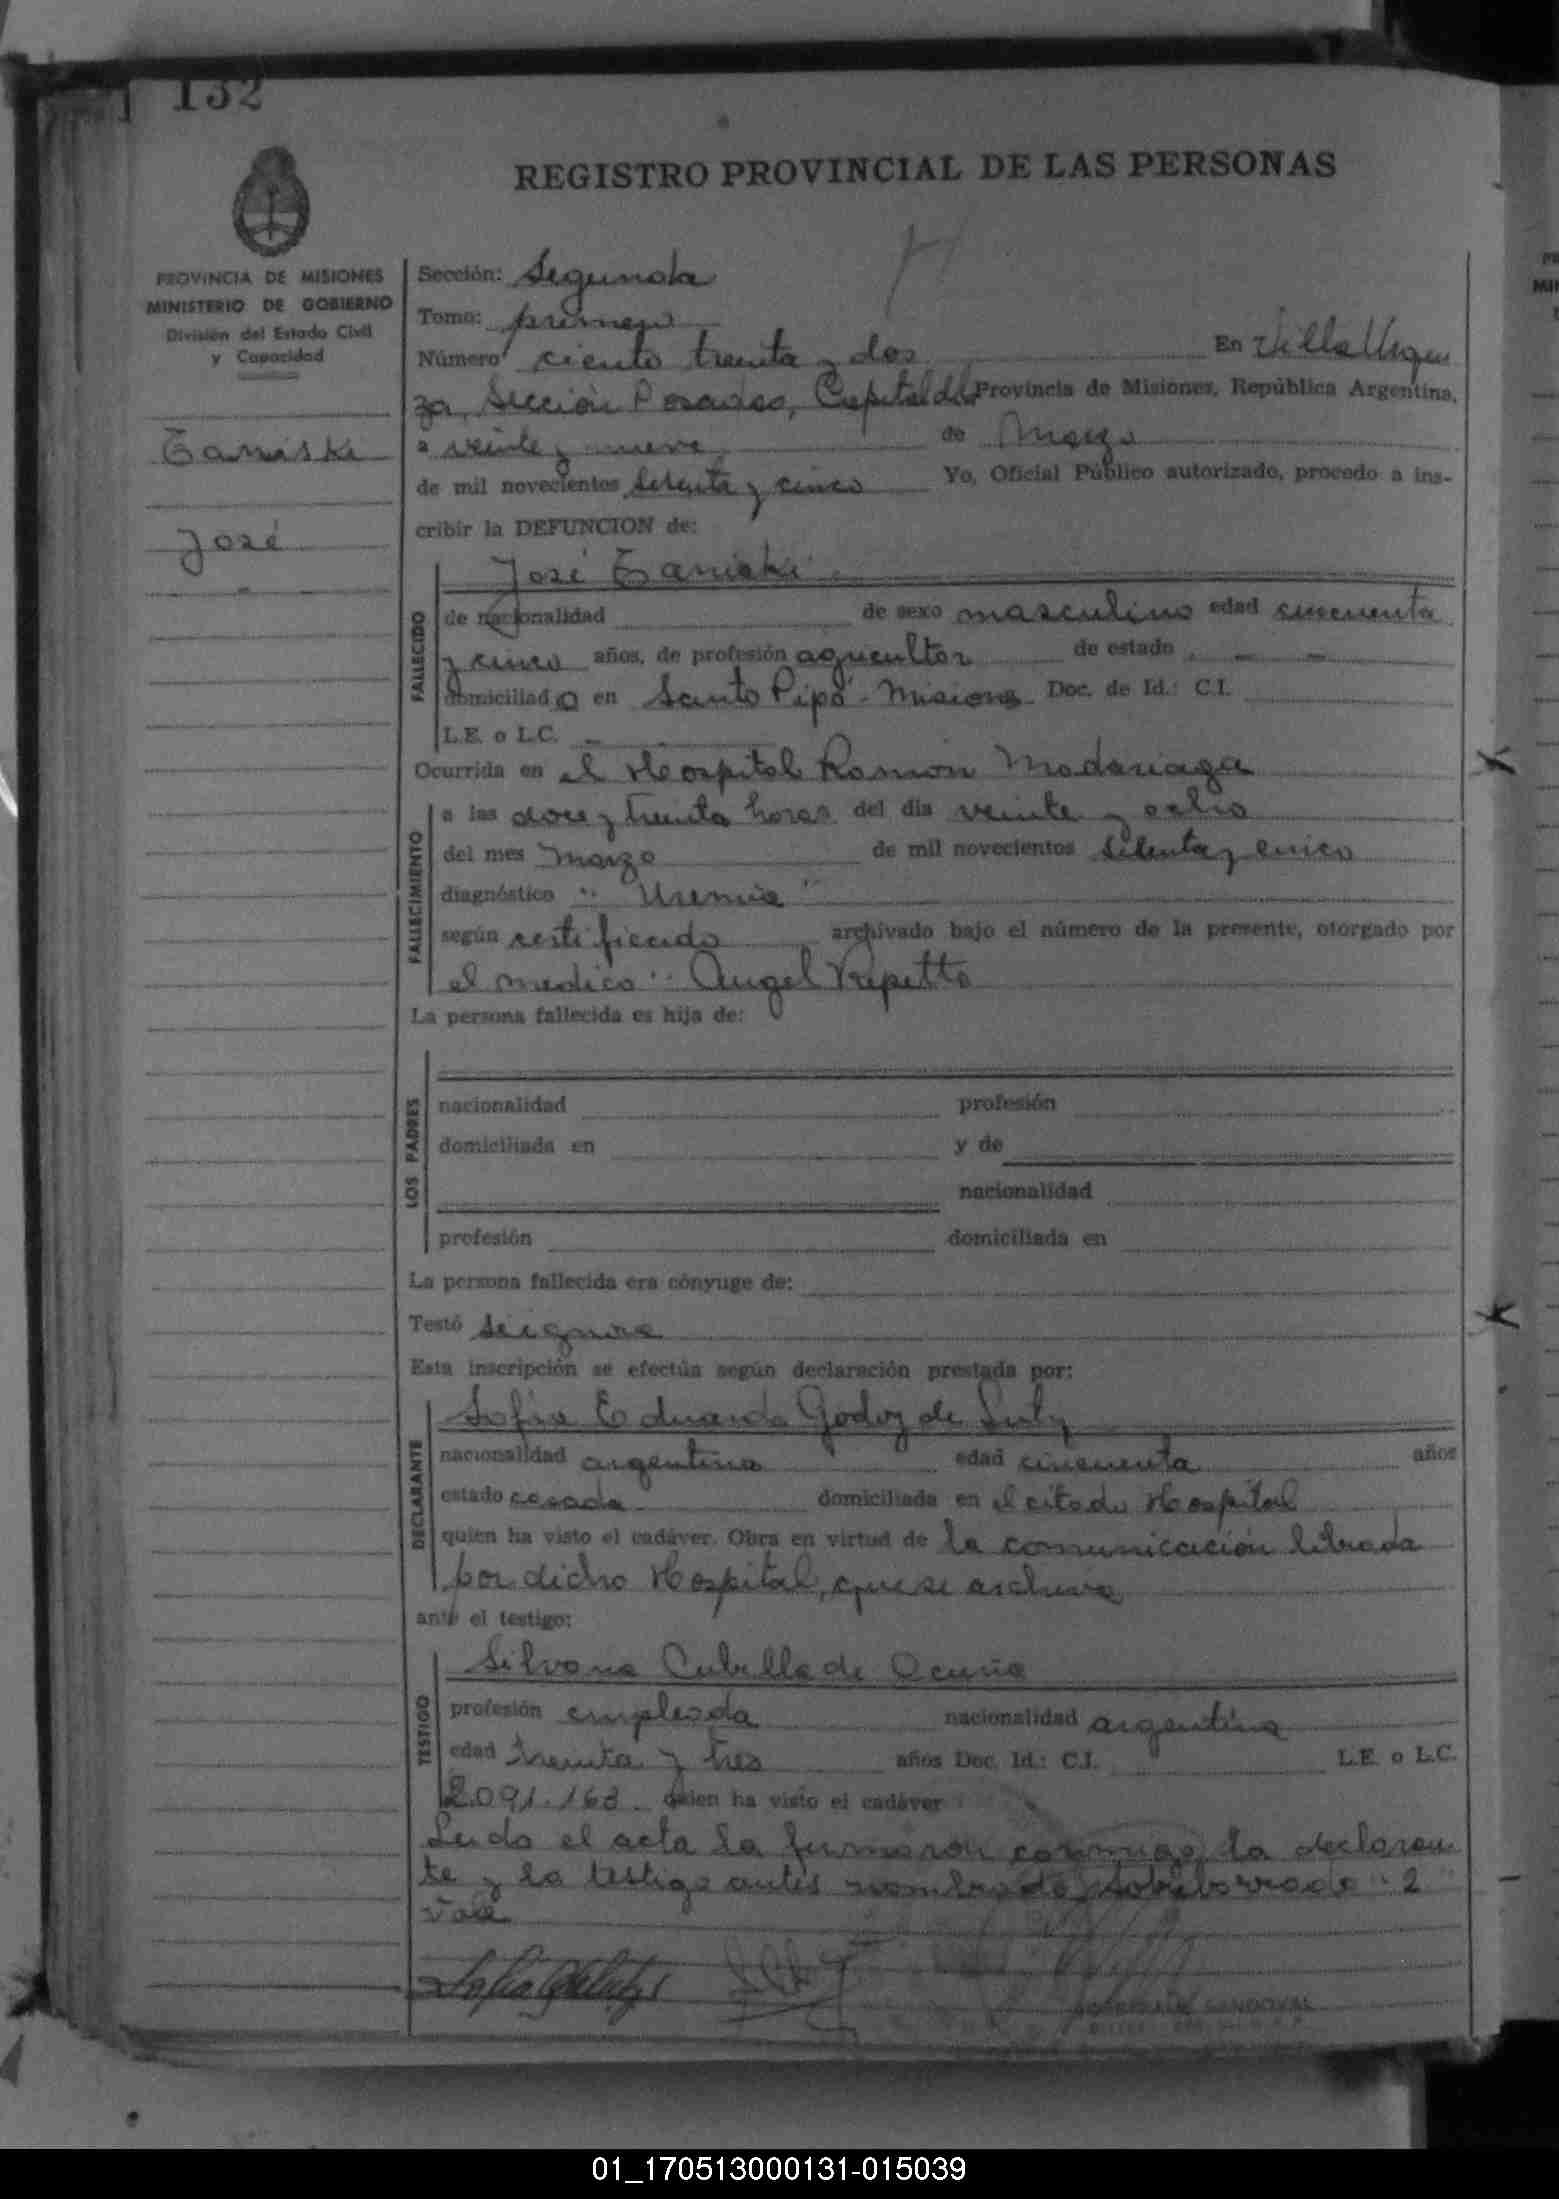 132
REGISTRO PROVINCIAL DE LAS PERSONAS
PROVINCIA DE MISIONES
MINISTERIO DE GOBIERNO
División del Estado Civil
y Capacidad
Taniski
José
Sección: Segunda
Tomo: primero
Número ciento treinta y dos En Villa Urqui
za, Sección Posadas, Capital de la Provincia de Misiones, República Argentina,
a veinte y nueve de Marzo
de mil novecientos setenta y cinco Yo, Oficial Público autorizado, procedo a ins-
cribir la DEFUNCION de:
José Taniski
FALLECIDO
de nacionalidad de sexo masculino edad cincuenta
y cinco años, de profesión agricultor de estado
domiciliado en Santo Pipó - Misiones Doc. de Id.: C.I.
L.E. o L.C.
Ocurrida en el Hospital Ramón Madariaga
FALLECIMIENTO
a las doce y treinta horas del día veinte y ocho
del mes Marzo de mil novecientos setenta y cinco
diagnóstico "Uremia"
según certificado archivado bajo el número de la presente, otorgado por
el medico "Angel Repetto
La persona fallecida es hija de:
LOS PADRES
nacionalidad profesión
domiciliada en y de
nacionalidad
profesión domiciliada en
La persona fallecida era cónyuge de:
Testó se ignora
Esta inscripción se efectúa según declaración prestada por:
DECLARANTE
Sofía Eduarda Godoy de
nacionalidad argentina edad cincuenta años
estado casada domiciliada en el citado Hospital
quien ha visto el cadáver. Obra en virtud de la comunicación librada
por dicho Hospital, que se archiva
ante el testigo:
TESTIGO
Silvana Cubilla de Acuña
profesión empleada nacionalidad argentina
edad treinta y tres años Doc. Id.: C.I. L.E. o L.C.
2.091.163 quien ha visto el cadáver
Leida el acta la firmaron conmigo la declaran
te y la testigo antes nombrada, sobreborrado "2"
vale
SANDOVAL
01_170513000131-015039